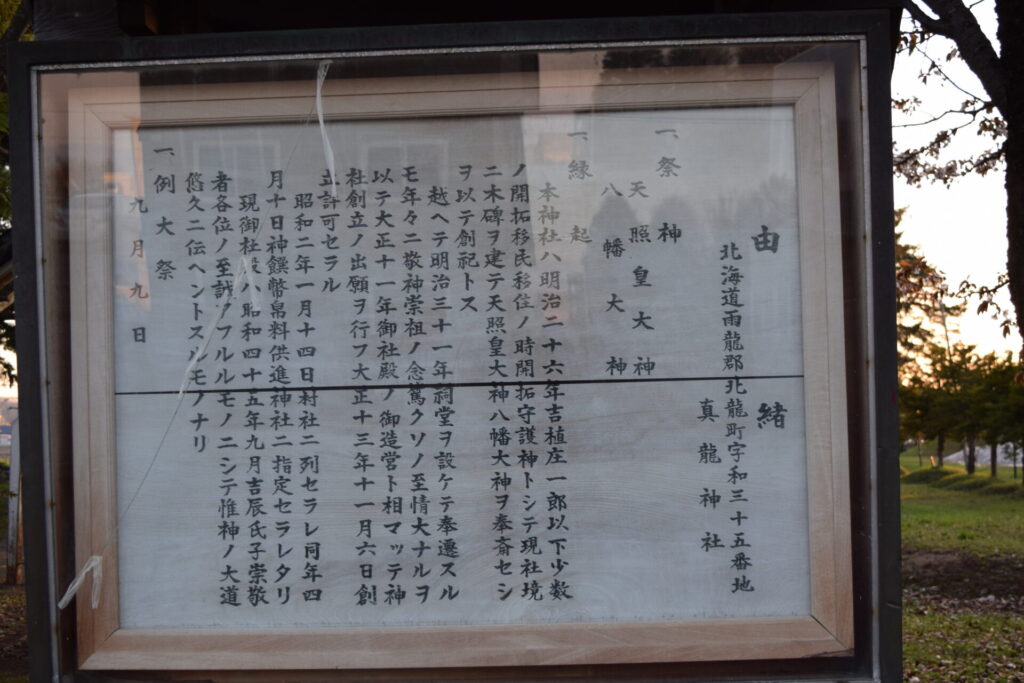 由緒
北海道雨龍郡北龍町字和三十五番地
真龍神社
一、祭神
天照皇大神
八幡大神
一、縁起
本神社ハ明治二十六年吉植庄一郎以下少数
ノ開拓移民移住ノ時開拓守護神トシテ現社境
ニ木碑ヲ建テ天照皇大神八幡大神ヲ奉斎セシ
ヲ以テ創祀トス
越ヘテ明治三十一年祠堂ヲ設ケテ奉遷スル
モ年々ニ敬神崇祖ノ念篤クソノ至情大ナルヲ
以テ大正十一年御社殿ノ御造営ト相マッテ神
社創立ノ出願ヲ行フ大正十三年十一月六日創
立許可セラル
昭和二年一月十四日村社ニ列セラレ同年四
月十日神饌幣帛料供進神社ニ指定セラレタリ
現御社殿ハ昭和四十五年九月吉辰氏子崇敬
者各位ノ至誠アフルルモノニシテ惟神ノ大道
悠久ニ伝ヘントスルモノナリ
一、例大祭
九月九日